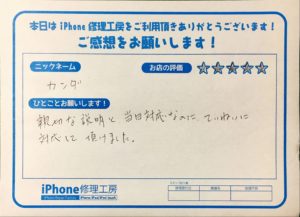 本日は iPhone 修理工房をご利用頂きありがとうございます!
ご感想をお願いします!
ニックネーム
お店の評価
カンダ
ひとことお願いします!
親切な説明と当日対応なのに、ていねいに
対応して頂けました。
iPhone修理工房